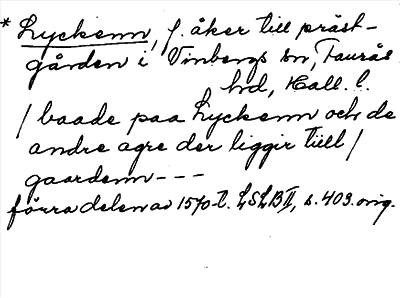 * Lyckenn, f. åker till präst-
gården i Vinbergs sn, Faurås
hd, Hall. l.
/ baade paa Lyckenn och de
andre agre der liggir tiill /
gaardenn - - -
förra delen av 1570-t. LSLB II, s. 403. orig.